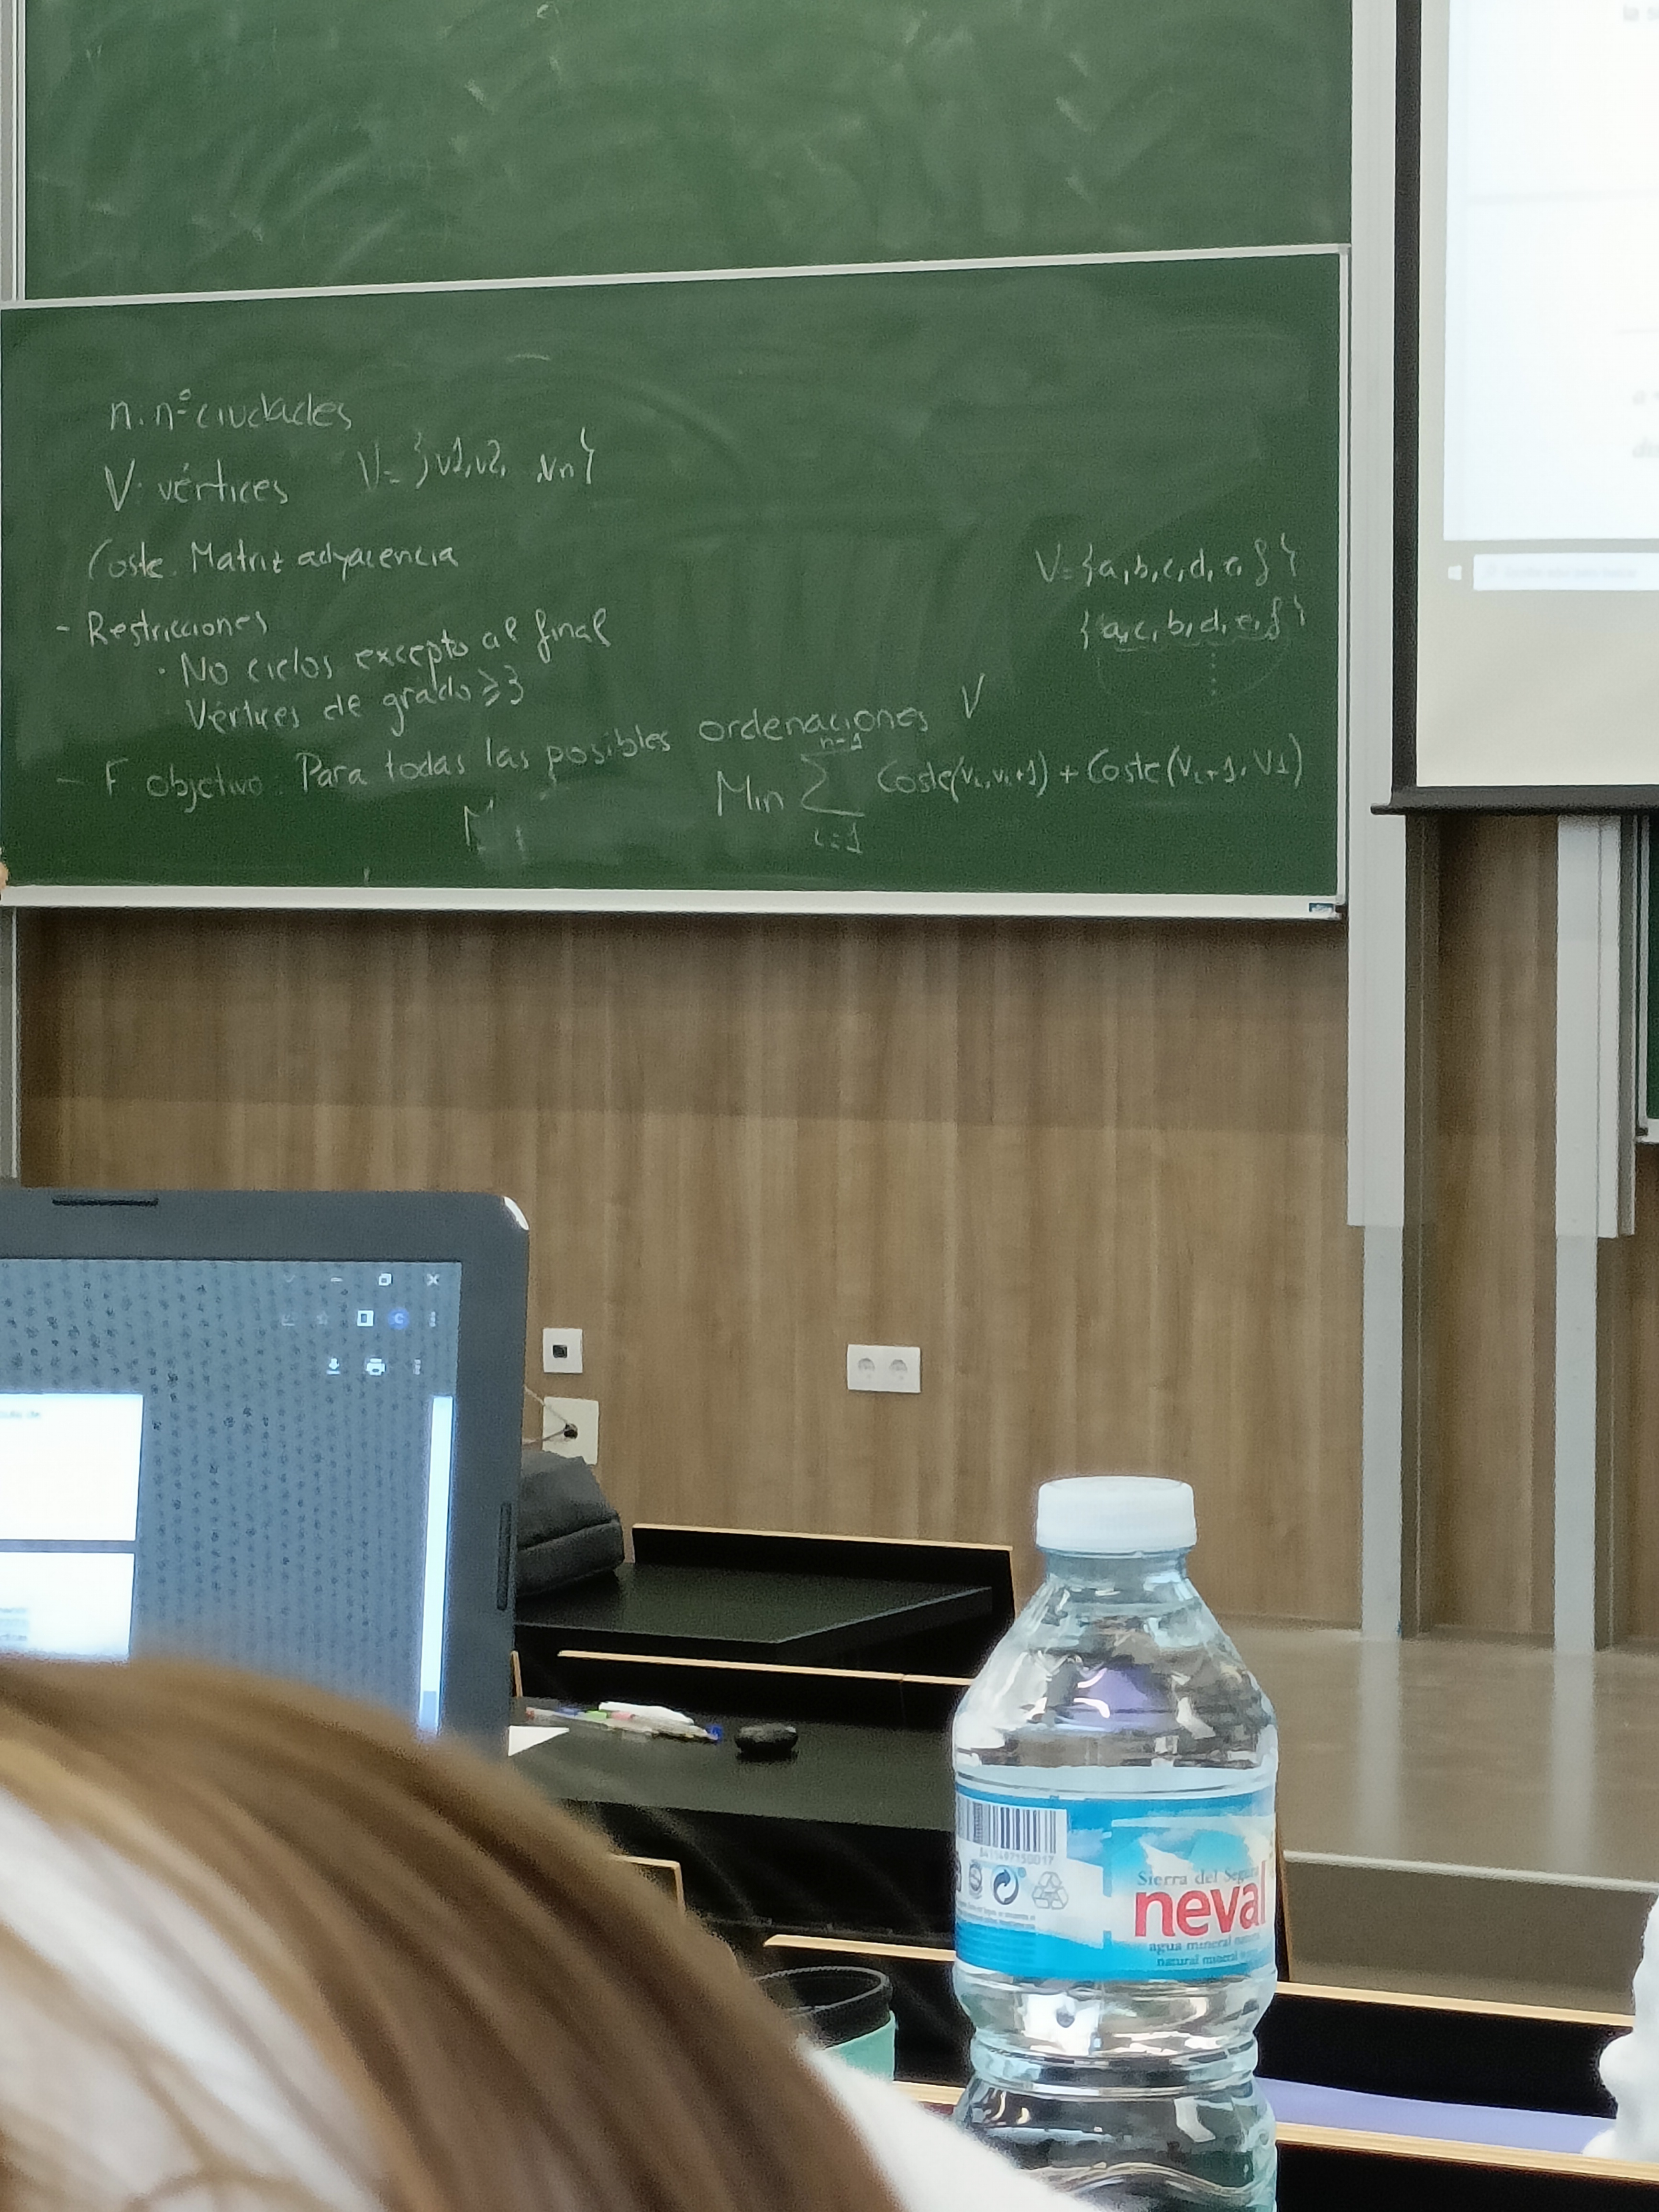 n: nº ciudades
V: vértices V = }v1, v2, , vn{
Coste. Matriz adyacencia
V = {a, b, c, d, e, f }
{ a, c, b, d, e, f }
- Restricciones
· No ciclos excepto al final
Vértices de grado ≥ 3
- F. objetivo: Para todas las posibles ordenaciones V
Min ∑ i=1 n-1 Coste(vi, vi+1) + Coste(vi+1, V1)
8411497150017
Sierra del Segura
neval
agua mineral
natural mineral